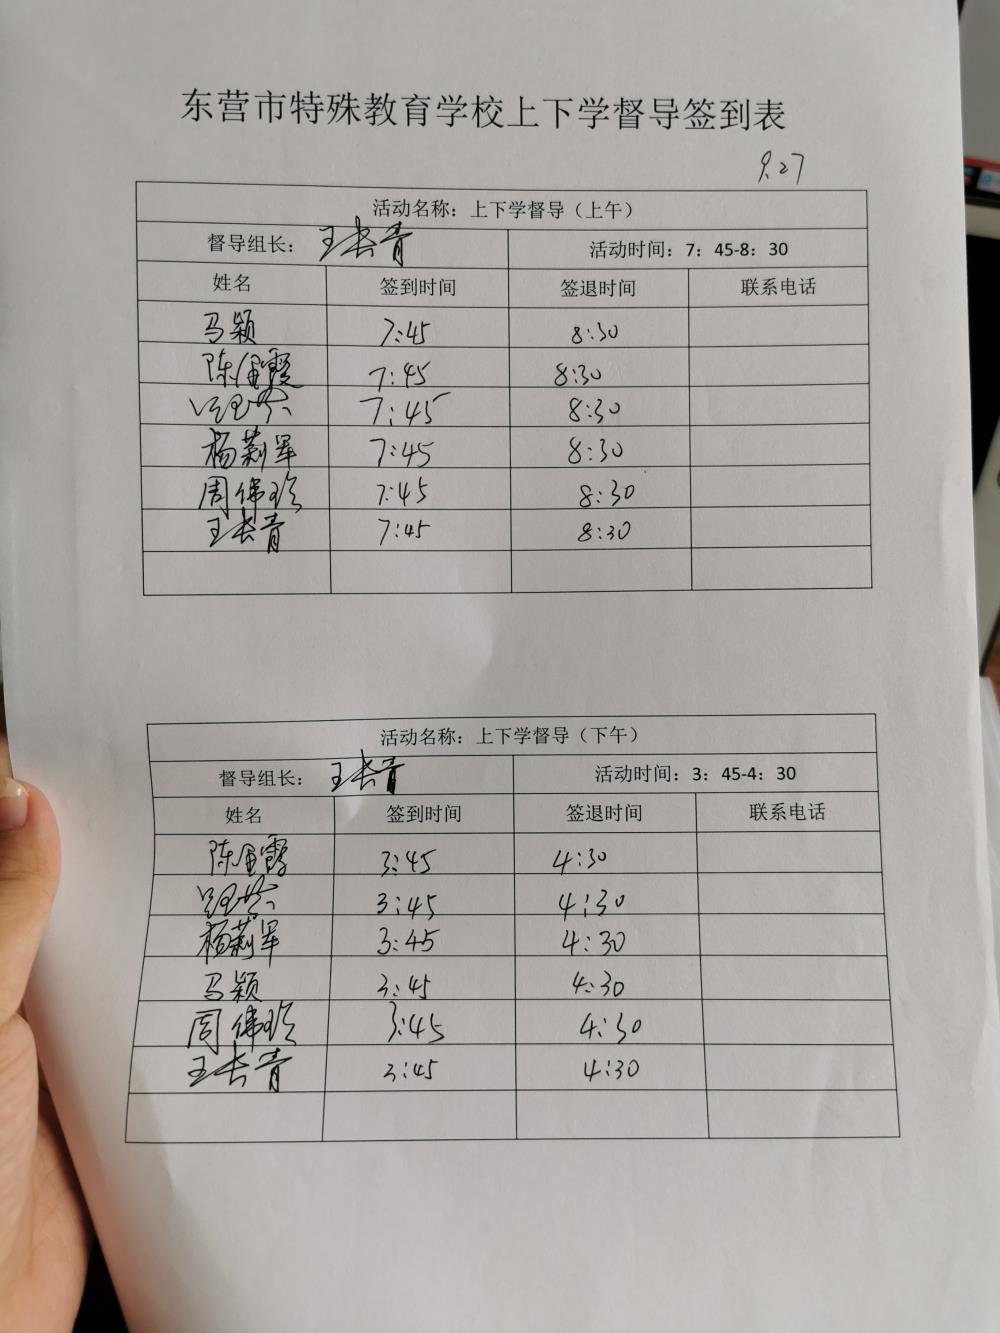 东营市特殊教育学校上下学督导签到表
9.27
活动名称：上下学督导（上午）
督导组长： 王长青 活动时间：7：45-8：30
姓名 签到时间 签退时间 联系电话
马颖 7:45 8:30
7:45 8:30
7:45 8:30
杨莉军 7:45 8:30
周伟珍 7:45 8:30
王长青 7:45 8:30
活动名称：上下学督导（下午）
督导组长： 王长青 活动时间：3：45-4：30
姓名 签到时间 签退时间 联系电话
3:45 4:30
3:45 4:30
杨莉军 3:45 4:30
马颖 3:45 4:30
周伟珍 3:45 4:30
王长青 3:45 4:30